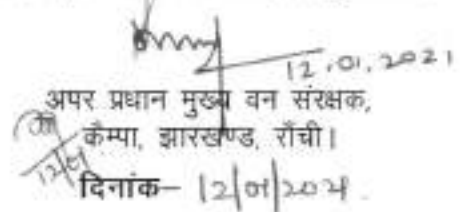 12.01.2021
अपर प्रधान मुख्य वन संरक्षक,
कैम्पा, झारखण्ड, राँची।
दिनांक– 12/01/2021.